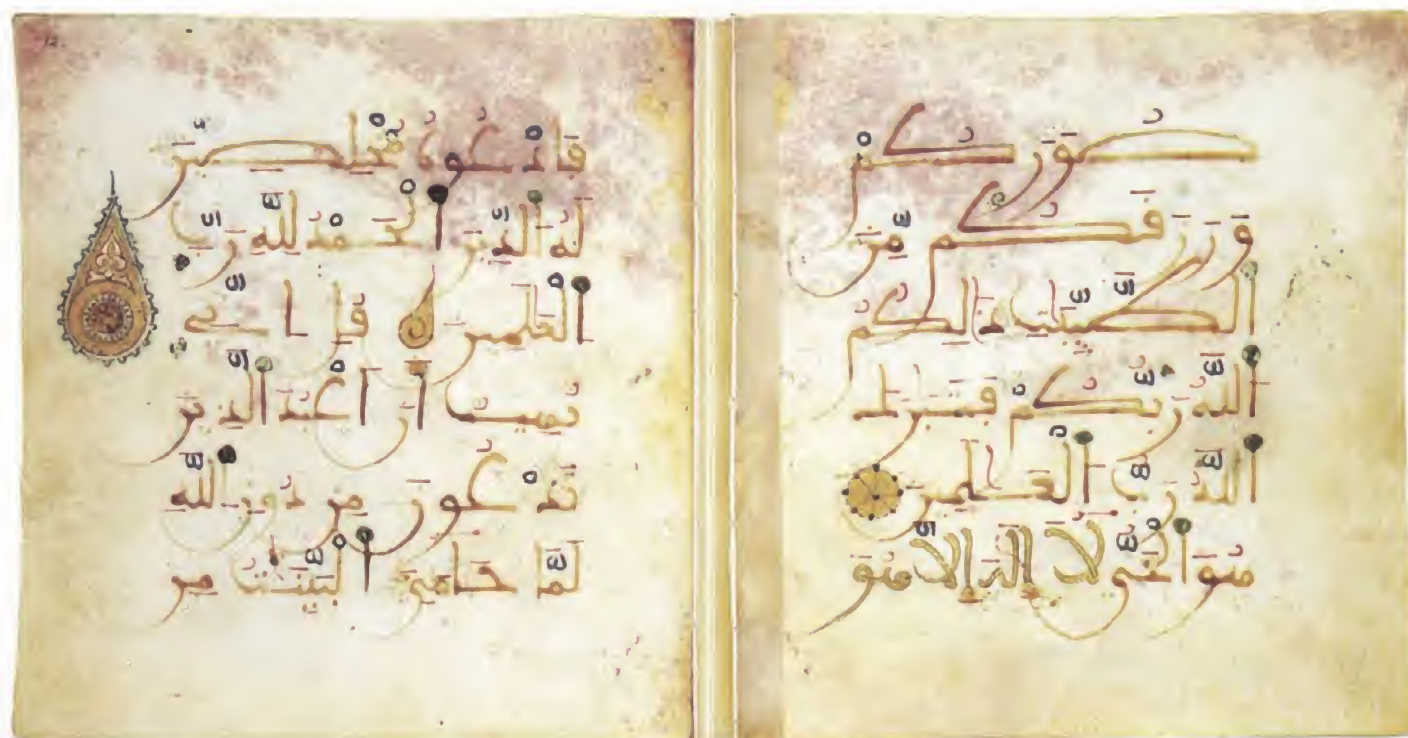 صُوَرَكُمْ
وَرَزَقَكُم مِّنَ
ٱلطَّيِّبَٰتِ ذَٰلِكُمُ
ٱللَّهُ رَبُّكُمْ فَتَبَٰرَكَ
ٱللَّهُ رَبُّ ٱلْعَٰلَمِينَ
هُوَ ٱلْحَىُّ لَآ إِلَٰهَ إِلَّا هُوَ
فَٱدْعُوهُ مُخْلِصِينَ
لَهُ ٱلدِّينَ ٱلْحَمْدُ لِلَّهِ رَبِّ
ٱلْعَٰلَمِينَ قُلْ إِنِّى
نُهِيتُ أَنْ أَعْبُدَ ٱلَّذِينَ
تَدْعُونَ مِن دُونِ ٱللَّهِ
لَمَّا جَآءَنِىَ ٱلْبَيِّنَٰتُ مِن